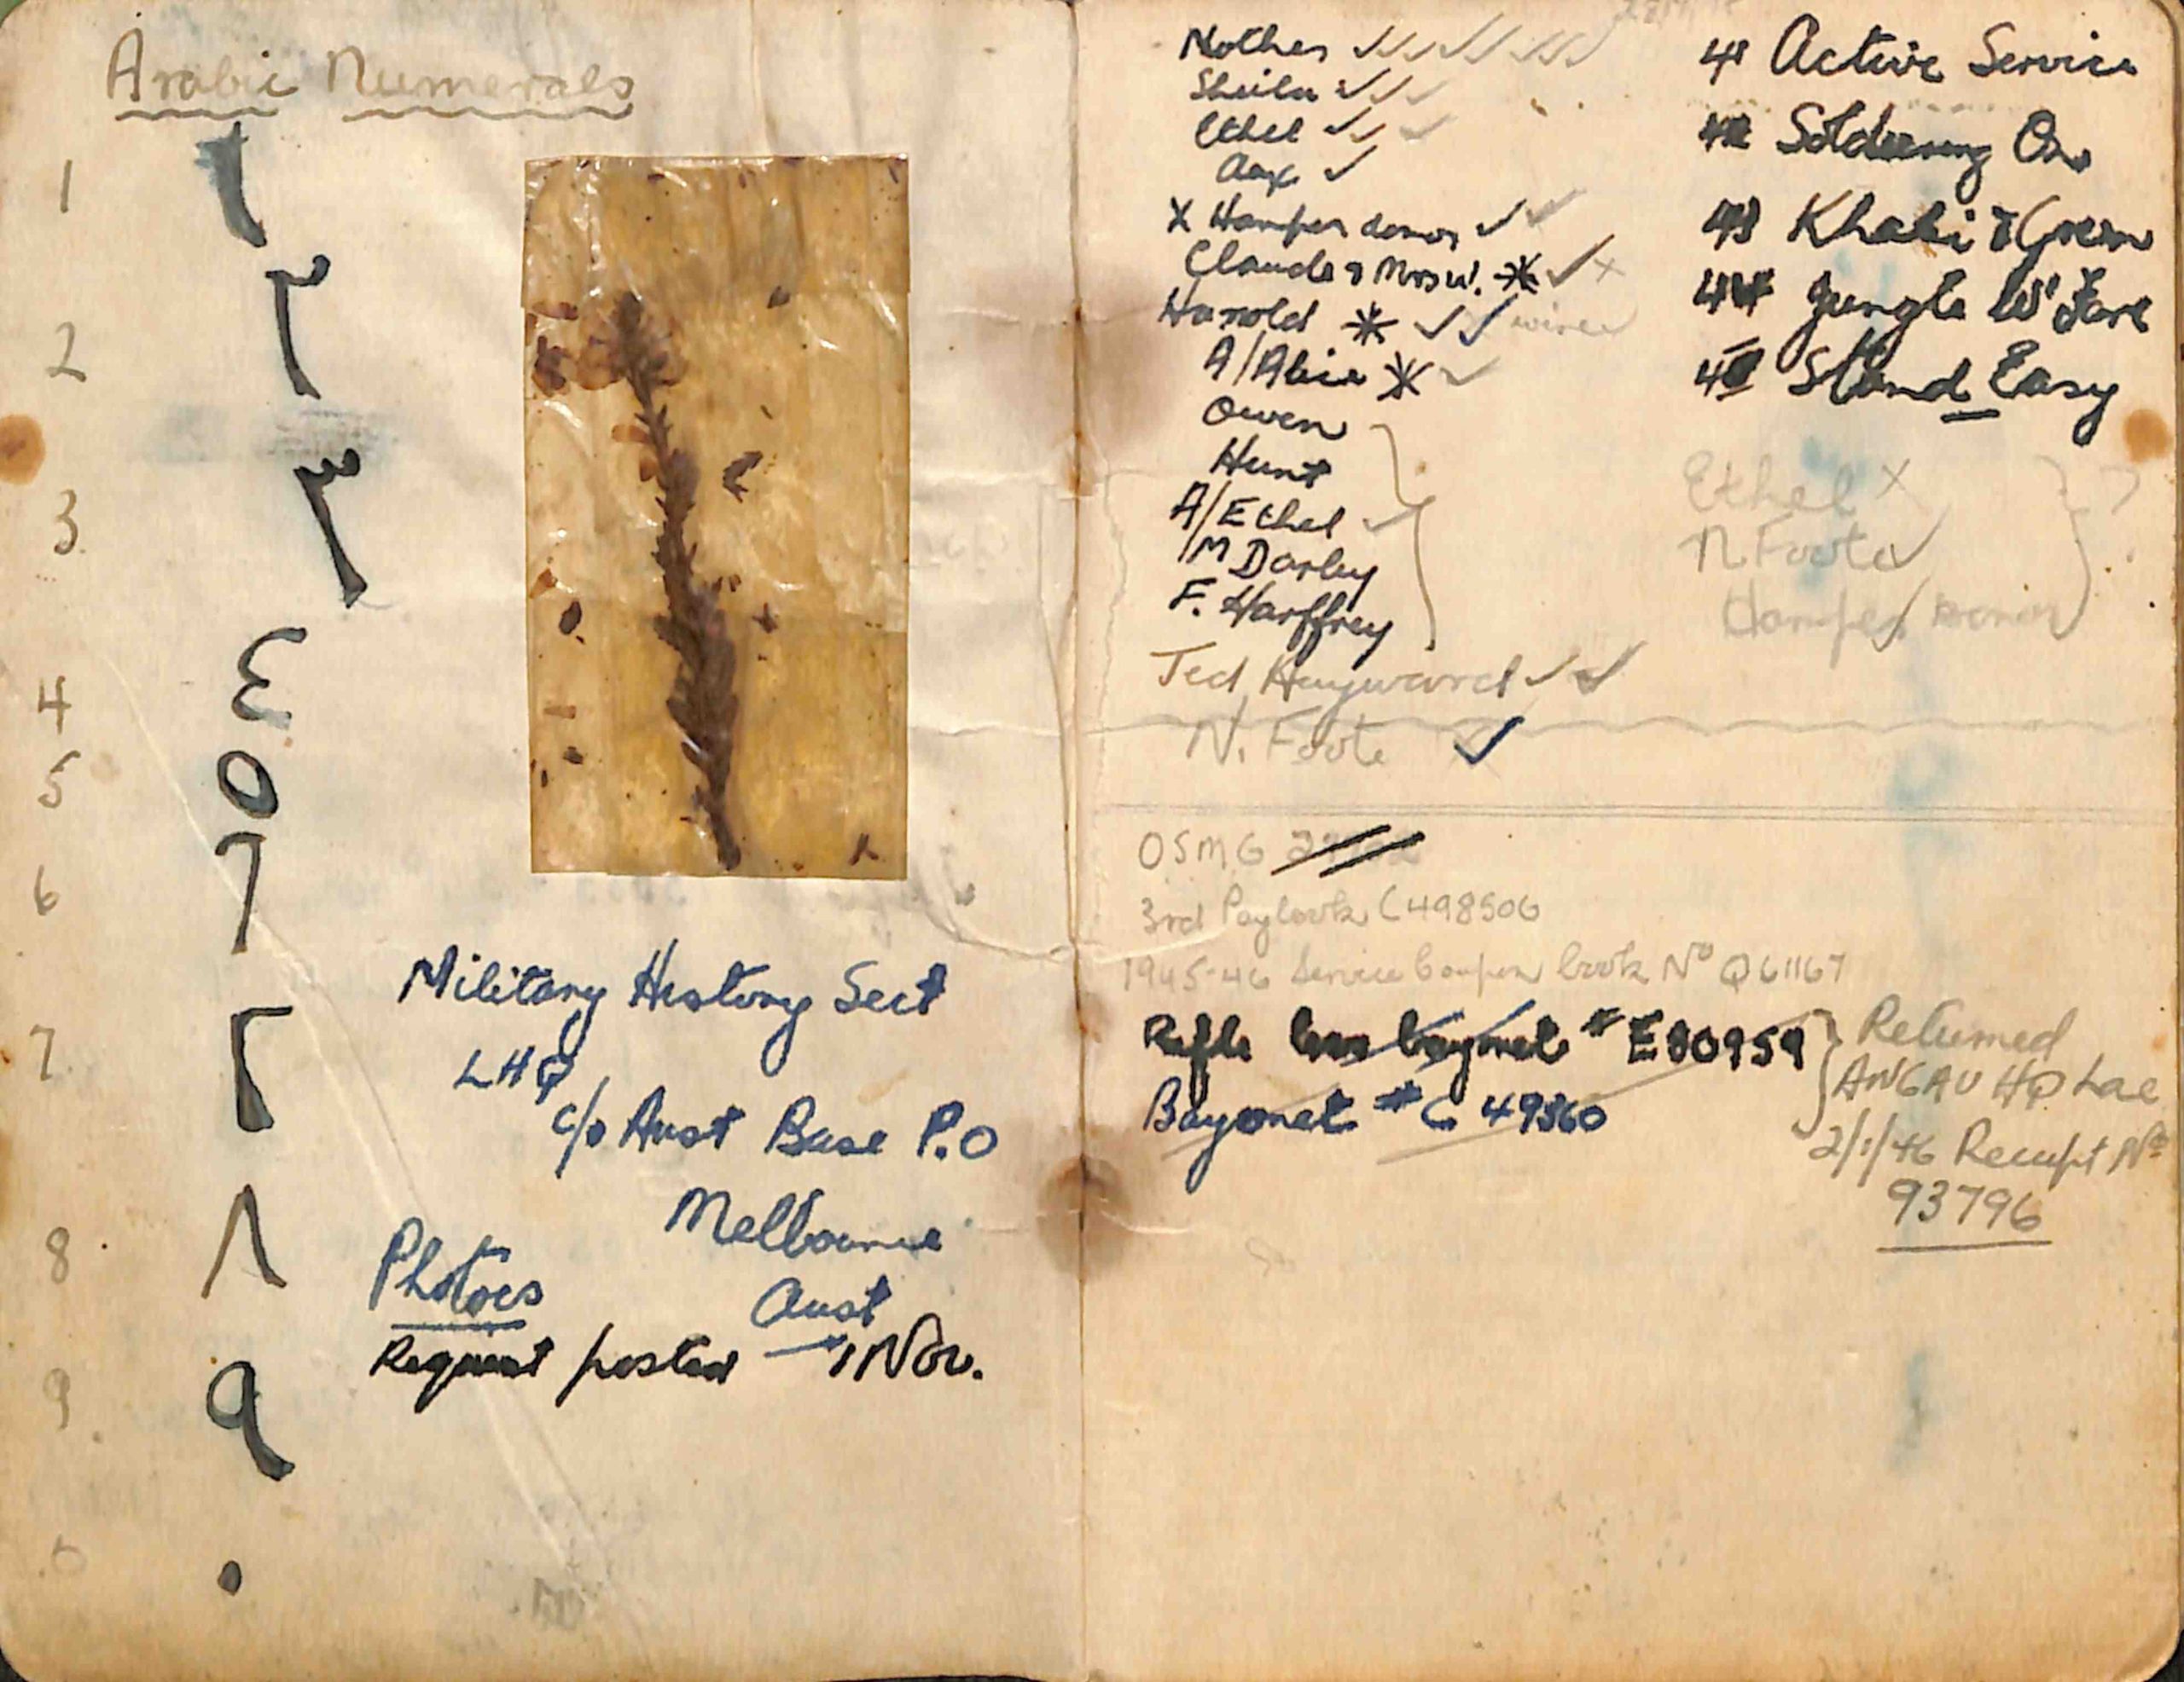 Arabic Numerals
1 ١
2 ٢
3 ٣
4 ٤
5 ٥
6 ٦
7 Γ
8 ٨
9 ٩
0 ٠
Military History Sect
LHQ
c/o Aust Base P.O
Melbourne
Aust
Photoes
Request posted 1 Nov.
Mother ✓✓✓✓✓✓✓✓
Sheila ✓✓✓
Ethel ✓✓✓
✓
X Hamper donor ✓✓
Claude & Mrs W. * ✓ x
Harold * ✓✓
A/Alice * ✓
Owen
Hunt
A/Ethel ✓
M Darley
F. Harffrey
Ted Hayward ✓✓
N. Foote ✓
41 Active Service
42 Soldiering On
43 Khaki & Green
44 Jungle W'Fare
45 Stand Easy
Ethel x
N Foote ✓ ?
Hamper Donor ✓
OSMG
3rd Paybook C498506
1945-46 Service Coupon book Nº Q61167
Rifle less bayonet # E80959
Bayonet # C 49360
Returned
ANGAU HQ Lae
2/1/46 Receipt Nº
93796